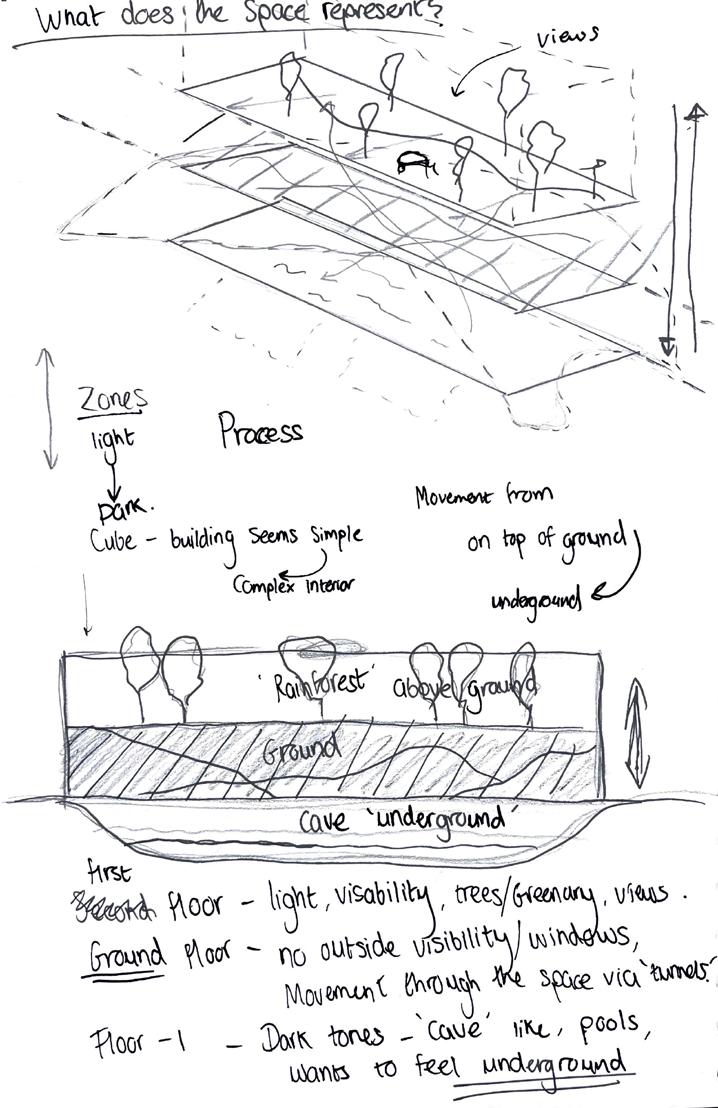 What does the Space represent?
views
Zones
light
Dark.
Process
Cube - building seems simple
Complex interior
Movement from
on top of ground
underground
'Rainforest' above ground
Ground
Cave 'underground'
first
floor - light, visability, trees/Greenary, views.
Ground floor - no outside visibility/windows,
Movement through the space via 'tunnels'.
Floor -1 - Dark tones - 'cave' like, pools,
wants to feel underground